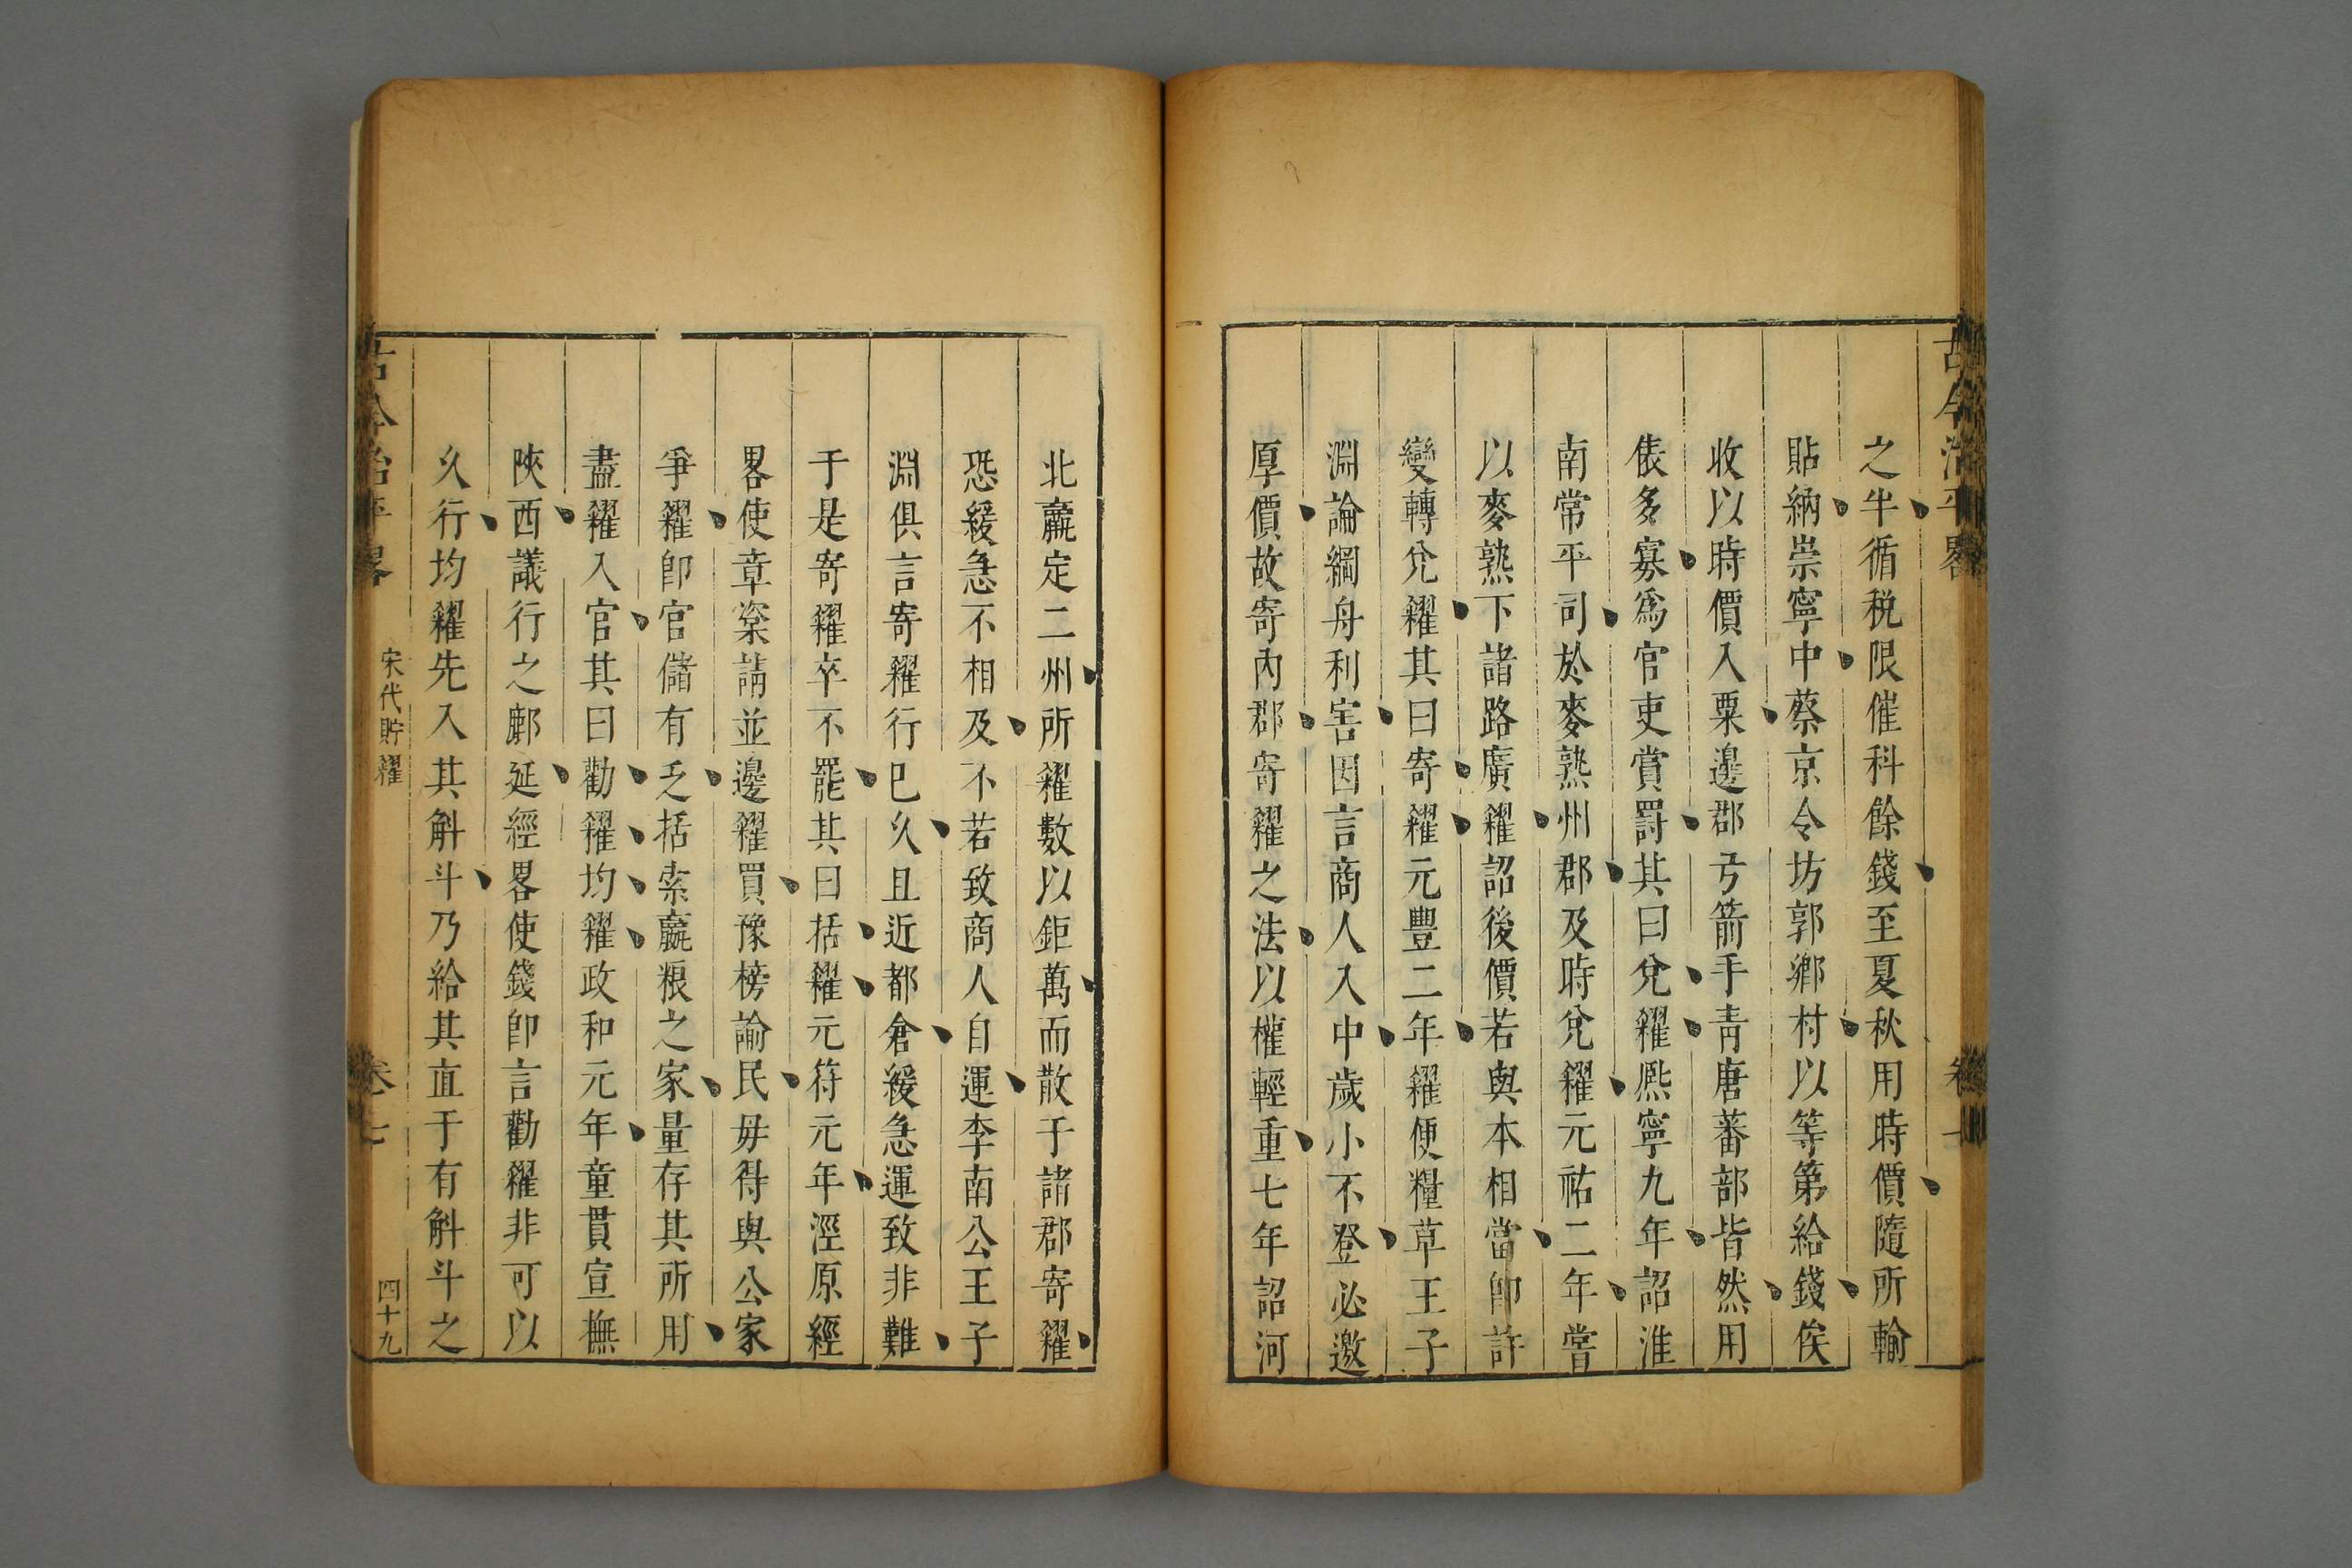 古今治平畧
之牛循稅限催科餘錢至夏秋用時價隨所輸
貼納崇寧中蔡京令坊郭鄉村以等第給錢俟
收以時價入粟邊郡弓箭手靑唐蕃部皆然用
俵多寡爲官吏賞罸其曰兌糴熈寧九年詔淮
南常平司於麥熟州郡及時兌糴元祐二年嘗
以麥熟下諸路廣糴詔後價若與本相當卽許
變轉兌糴其曰寄糴元豐二年糴便糧草王子
淵論綱舟利害因言商人入中歲小不登必邀
厚價故寄內郡寄糴之法以權輕重七年詔河
北贏定二州所糴數以鉅萬而散于諸郡寄糴
恐緩急不相及不若致商人自運李南公王子
淵俱言寄糴行已久且近都倉緩急運致非難
于是寄糴卒不罷其曰括糴元符元年涇原經
畧使章楶請並邊糴買豫榜諭民毋得與公家
爭糴卽官儲有乏括索贏粮之家量存其所用
盡糴入官其曰勸糴均糴政和元年童貫宣撫
陝西議行之鄜延經畧使錢卽言勸糴非可以
久行均糴先入其斛斗乃給其直于有斛斗之
古今治平畧
宋代貯糴
卷七
四十九